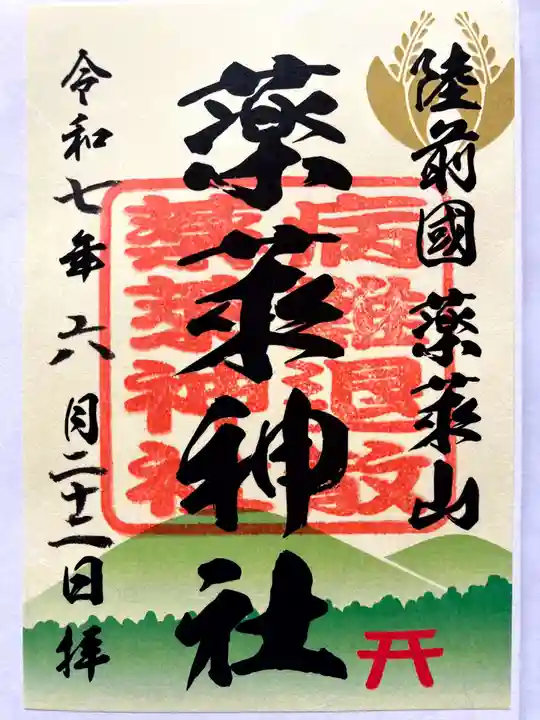 陸前國 薬萊山
薬萊神社
病難退散
薬萊神社
令和七年六月二十二日拝